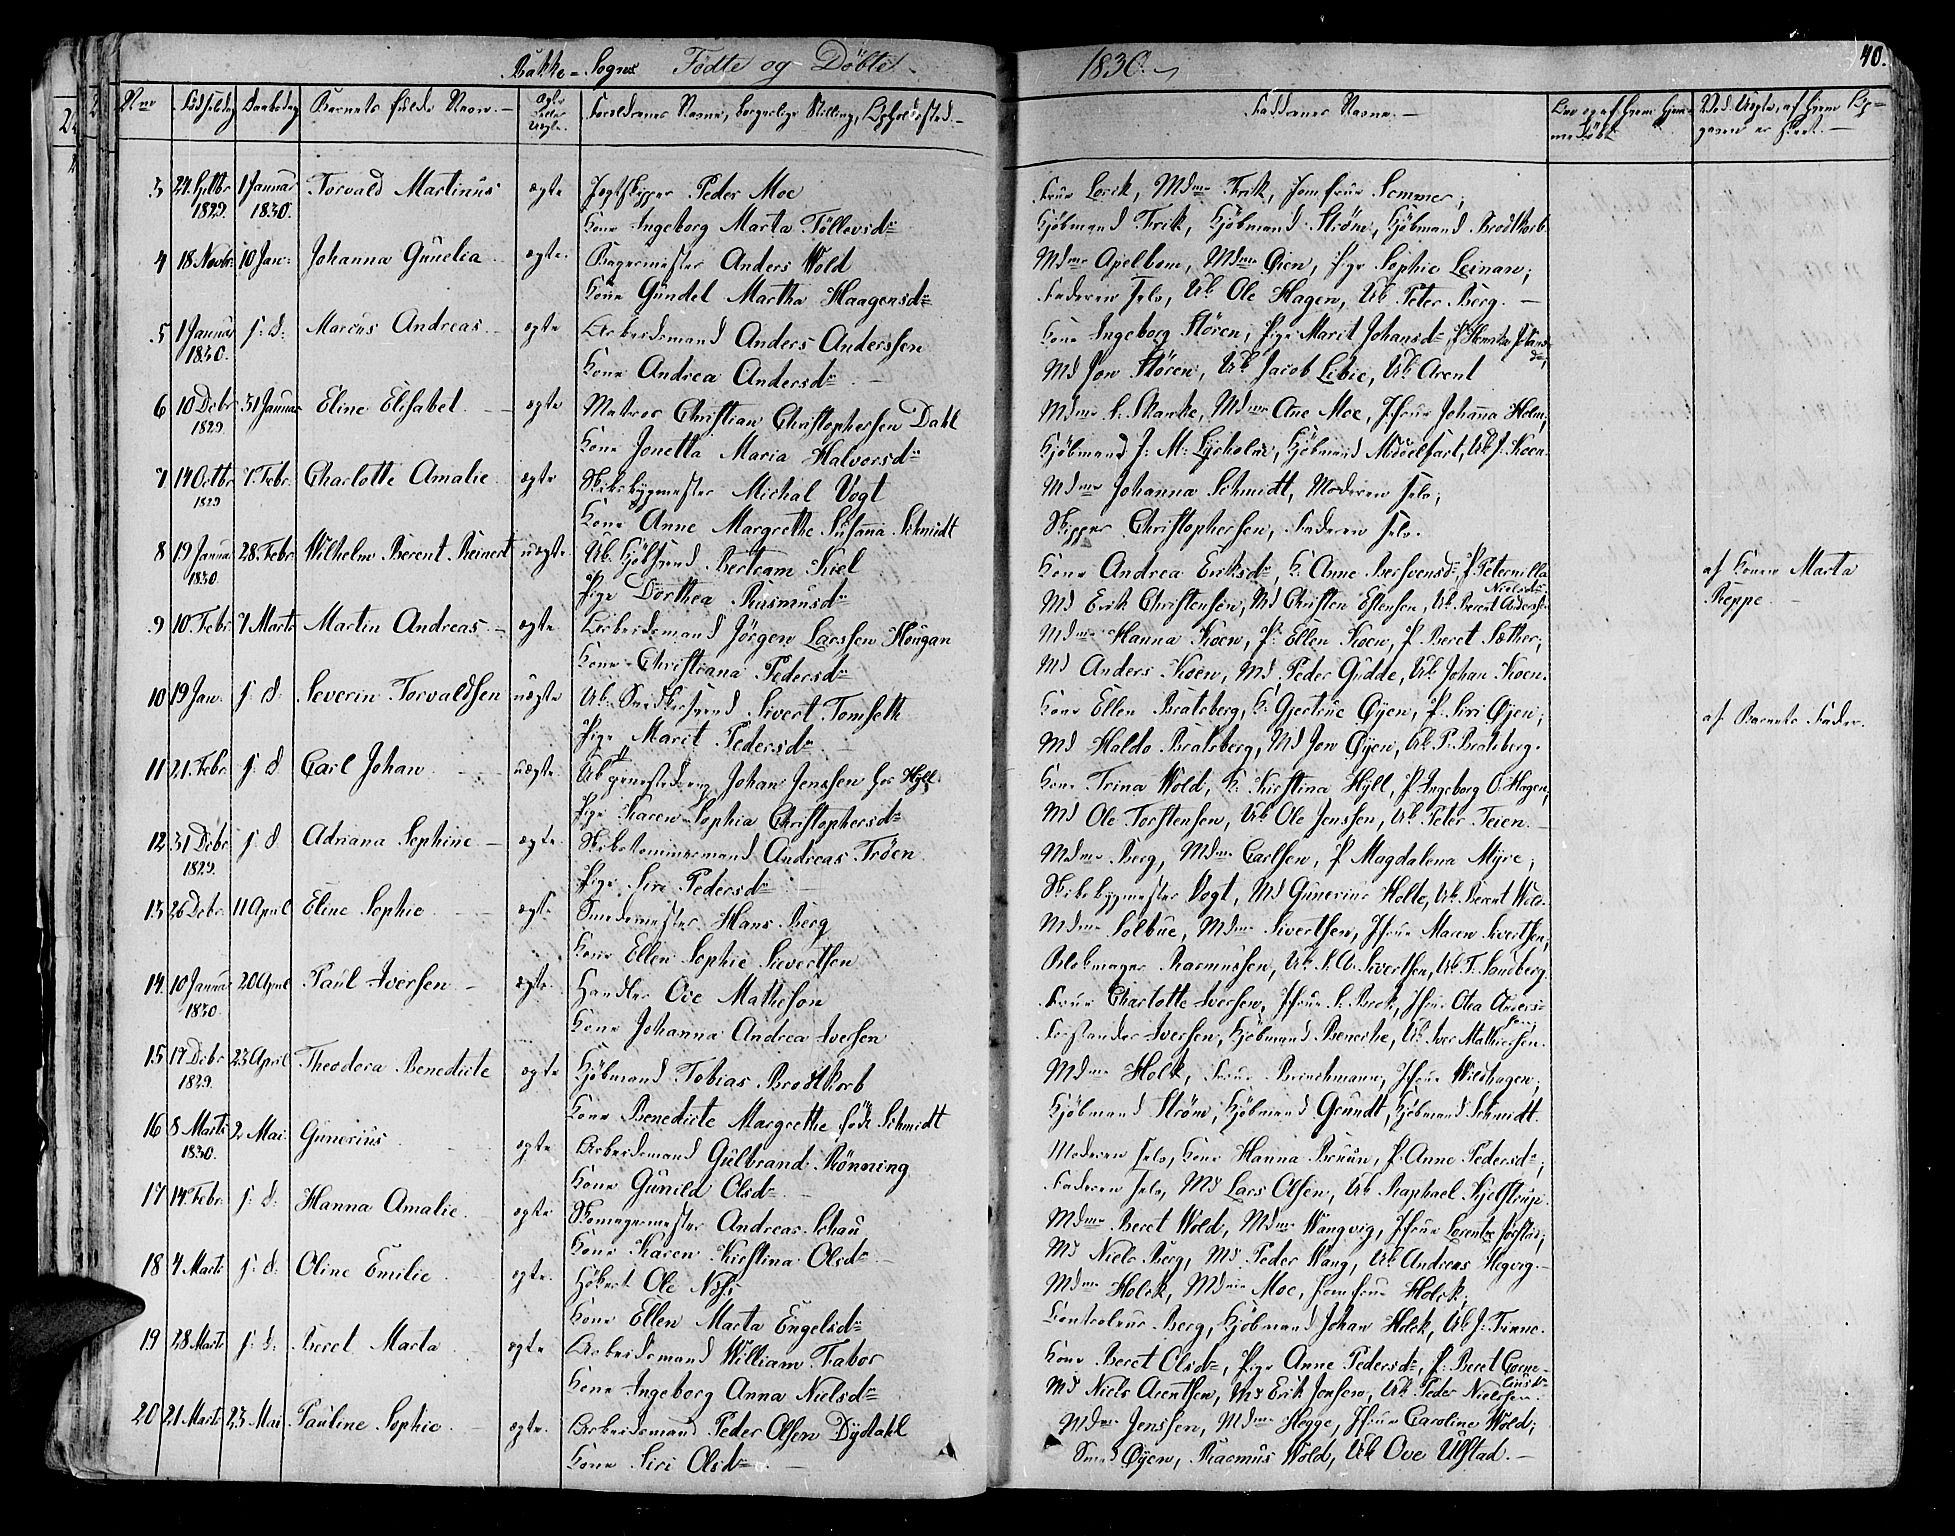 Bakke-Sogns Födte og Döbte 1830. 40.
Nnr Födselsdag Daabsdag Barnets fulde Navn. Ægte eller Uægte. Foreldrenes Navne, borgerlige Stilling, Opholdssted. Faddernes Navne.
3 1829. 1 Januar 1830. Torvald Martinus ægte Jagtskipper Peder Moe
Kone Ingeborg Marta Föllevsdr
Frue Lorck, Mdme Frik, Jomfrue Sommer;
Kjöbmand Frik, Kjöbmand Ström, Kjöbmand Brodtkorb
4 18 Novbr. 10 Jan: Johanna Gunelia ægte. Bagermester Anders Wold
Kone Gundel Martha Haagensdr
Mdme Apelbom, Mdme Öien, Pige Sophie Leinan;
Faderen selv, Uk Ole Hagen, Uk Peter Berg.
5 1 Januar 1830. s: d: Marcus Andreas ægte Arbeidsmand Anders Anderssen
Kone Andrea Andersdr
Kone Ingeborg Stören, Pige Marit Johansdr,
Md Jon Stören, Uk Jacob Libie, Uk Arent
6 10 Debr 1829 31 Januar Eline Elisabet ægte Matros Christian Christophersen Dahl
Kone Jonetta Maria Halvorsdr
Mdme Skanke, Mdme Ane Moe, Jfrue Johanna Holm;
Kjöbmand J: M: Lysholm, Kjöbmand Middelfart, Uk J: Koen
7 14 Octbr 1829 7. Febr. Charlotte Amalie ægte Skibsbygmester Michal Vogt
Kone Anne Margrethe Susana Schmidt
Mdme Johanna Schmidt, Moderen selv;
Skipper Christophersen, Faderen selv.
8 19 Januar 1830. 28. Febr. Wilhelm Berent Reinert uægte Uk. Bertram Kiel
Pige Dorthea Rasmusdr
Kone Andrea Eriksdr, K: Anne Bersvensdr, P: Peternilla Nielsdr
Md Erik Christensen, Md Christen Estensen, Uk Berent Anders
af Konen Marta Reppe.
9 10. Febr 7 Marts Martin Andreas ægte Arbeidsmand Jörgen Larssen Hougan
Kone Christiana Pedersdr
Mdme Hanna Koen, P: Ellen Koen, P. Beret Sæther;
Md Anders Koen, Md Peder Gudde, Uk Johan Koen.
10 19 Jan. s: d: Severin Torvaldsen uægte Uk. Snedkersvend Sivert Tomseth
Pige Marit Pedersdr
Kone Ellen Bratsberg, K: Gjertrue Öyen, P. Siri Öyen;
Md Haldo Bratsberg, Md Jon Öyen, Uk P. Bratsberg.
af Barnets Fader.
11 21. Febr s: d Carl Johan uægte Uk Johan Jenssen hos Hyll.
Pige Karen Sophia Christophersdr
Kone Trina Wold, K: Kirstina Hyll, P. Ingeborg O: Hagen;
Md Ole Torstensen, Uk Ole Jenssen, Uk Peter Teien.
12 31 Debr 1829. s: d. Adriana Sophine ægte. Skibstømmermand Andreas Tröen
Pige Siri Pedersdr
Mdme Berg, Mdme Carlsen, P. Magdalena Myre;
Skibsbygmester Vogt, Md Gunerius Holte, Uk. Berent
13 26 Debr. 11 April Eline Sophie ægte Smedemester Hans Berg
Kone Ellen Sophie Sievertsen
Mdme Solbue, Mdme Sivertsen, Jfrue Maren Sivertsen;
Blokmager Rasmussen, Uk S. A. Sivertsen, Uk T. Sandberg.
14. 10 Januar 1830 20 April Paul Iversen ægte. Handler Ove Matheson
Kone Johanna Andrea Iversen
Frue Charlotte Iversen, Jfrue Beck, Jfrue Olea
Forstander Iversen, Kjöbmand Benecke, Uk Iver Mathiesen.
15 17 Debr 1829. 23 April Theodora Benedicte ægte Kjöbmand Tobias Brodtkorb
Kone Benedicte Margrethe föd Schmidt
Mdme Holck, Frue Brinchmann, Jfrue Wildhagen;
Kjöbmand Ström, Kjöbmand Grundt, Kjöbmand Schmidt.
16 8 Marts 1830. 2 Mai Gunerius ægte Arbeidsmand Gulbrand Rönning
Kone Gunild Olsdr
Moderen selv, Kone Hanna Bruun, P. Anne Pedersdr;
Faderen selv, Md Lars Olsen, Uk Raphael Kjelstrup.
17 14 Febr. s: d: Hanna Amalie ægte Skomagermester Andreas Schau
Kone Karen Kirstina Olsdr
Mdme Beret Wold, Mdme Wangvig, Jfrue Lorentze
Md Niels Berg, Md Peder Wang, Uk Andreas Hegvig.
18 4 Marts s: d: Oline Emilie ægte. Höker Ole
Kone Ellen Marta Engelsdr
Mdme Holck, Mdme Moe, Jomfrue Holck;
Controleur Berg, Kjöbmand Johan Holck, Uk J: Finne.
19 28 Marts s: d. Beret Marta ægte Arbeidsmand William Tabor
Kone Ingeborg Anna Nielsdr
Kone Beret Olsdr, Pige Anne Pedersdr, P: Beret
Md Niels Arentsen, Md Erik Jensen, Uk Peder Nielssen.
20 21 Marts 23 Mai Pauline Sophie ægte. Arbeidsmand Peder Olsen Dydahl
Kone Siri Olsdr
Mdme Jenssen, Mdme Hegge, Jfrue Caroline Wold;
Smed Öyen, Rasmus Wold, Uk Ove Ulstad.